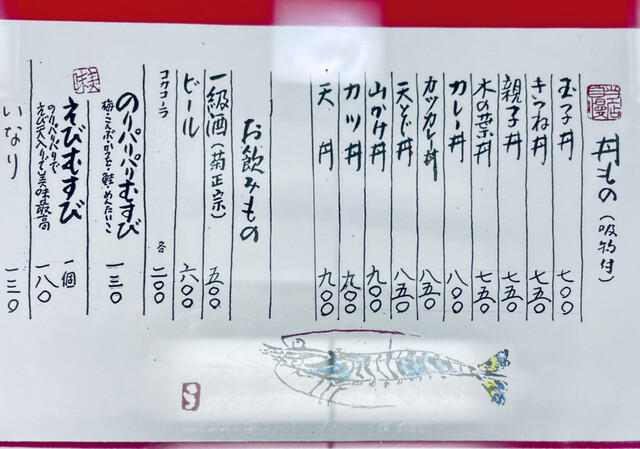 丼もの(吸物付)
玉子丼 七〇〇
きつね丼 七五〇
親子丼 七五〇
木の葉丼 七五〇
カレー丼 八〇〇
カツカレー丼 八五〇
天とじ丼 八五〇
山かけ丼 九〇〇
カツ丼 九〇〇
天丼 九〇〇
お飲みもの
一級酒(菊正宗) 五〇〇
ビール 六〇〇
コカコーラ 各 二〇〇
のりパリパリむすび 一三〇
えびむすび 一個 一八〇
のりパリパリで
えび天入りでも美味最高
いなり 一三〇